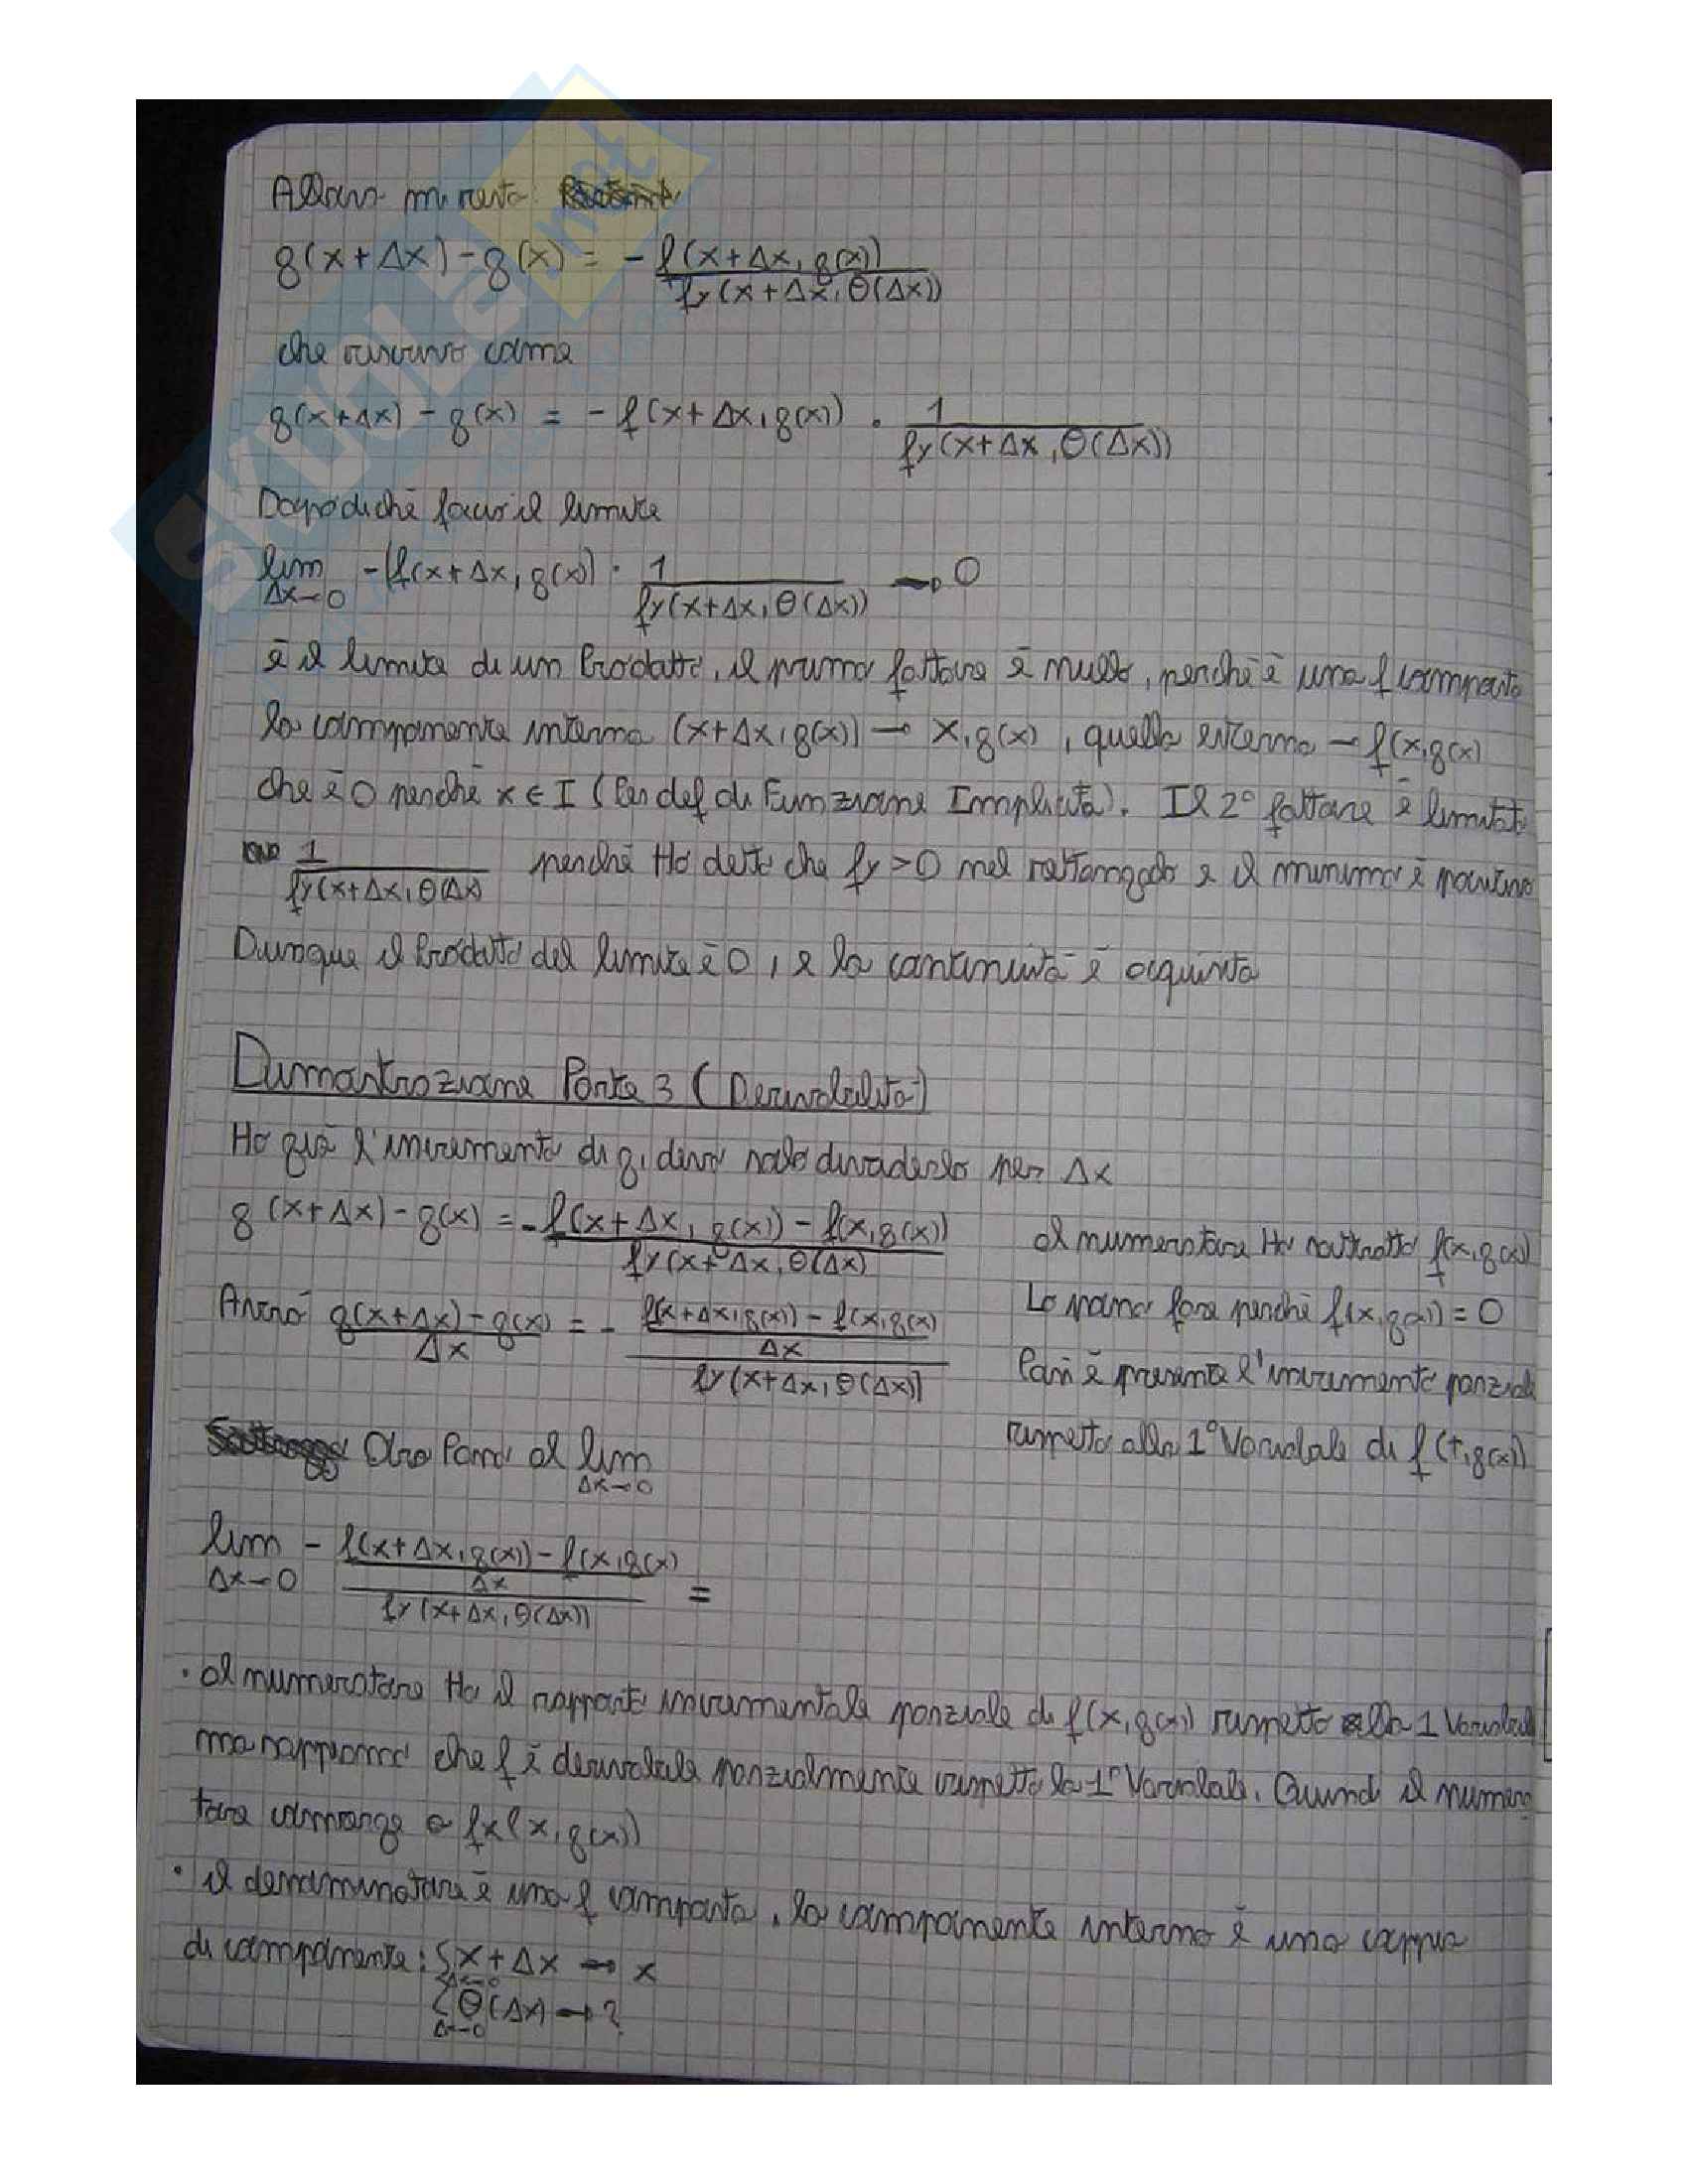 Allora mi resta
g(x+Δx)-g(x) = - f(x+Δx, g(x)) / fy(x+Δx, θ(Δx))
che riscrivo come
g(x+Δx) - g(x) = - f(x+Δx, g(x)) · 1 / fy(x+Δx, θ(Δx))
Dopodiché faccio il limite
lim Δx→0 - f(x+Δx, g(x)) · 1 / fy(x+Δx, θ(Δx)) → 0
è il limite di un Prodotto, il primo fattore è nullo, perché è una f composta
la componente interna (x+Δx, g(x)) → x, g(x), quella esterna → f(x, g(x)
che è 0 perché x ∈ I (Per def di Funzione Implicita). Il 2° fattore è limitato
1 / fy(x+Δx, θ(Δx) perché Ho detto che fy > 0 nel rettangolo e il minimo è positivo
Dunque il Prodotto del limite è 0, e la continuità è acquisita
Dimostrazione Parte 3 (Derivabilità)
Ho già l'incremento di g, devo solo dividerlo per Δx
g(x+Δx) - g(x) = - f(x+Δx, g(x)) - f(x, g(x)) / fy(x+Δx, θ(Δx)
al numeratore Ho sottratto f(x, g(x))
Lo posso fare perché f(x, g(x)) = 0
Avrò g(x+Δx) - g(x) / Δx = - f(x+Δx, g(x)) - f(x, g(x) / Δx / fy(x+Δx, θ(Δx))
Così è presente l'incremento parziale
rispetto alla 1° Variabile di f(t, g(x))
Ora Passo al lim Δx→0
lim Δx→0 - f(x+Δx, g(x)) - f(x, g(x) / Δx / fy(x+Δx, θ(Δx)) =
· al numeratore Ho il rapporto incrementale parziale di f(x, g(x)) rispetto alla 1 Variabile
ma sappiamo che f è derivabile parzialmente rispetto la 1° Variabile. Quindi il numera
tore converge a fx(x, g(x))
· il denominatore è una f composta, la componente interna è una coppia
di componente: { x+Δx → x
Δx→0
{ θ(Δx) → ?
Δx→0
SKUOLA.net